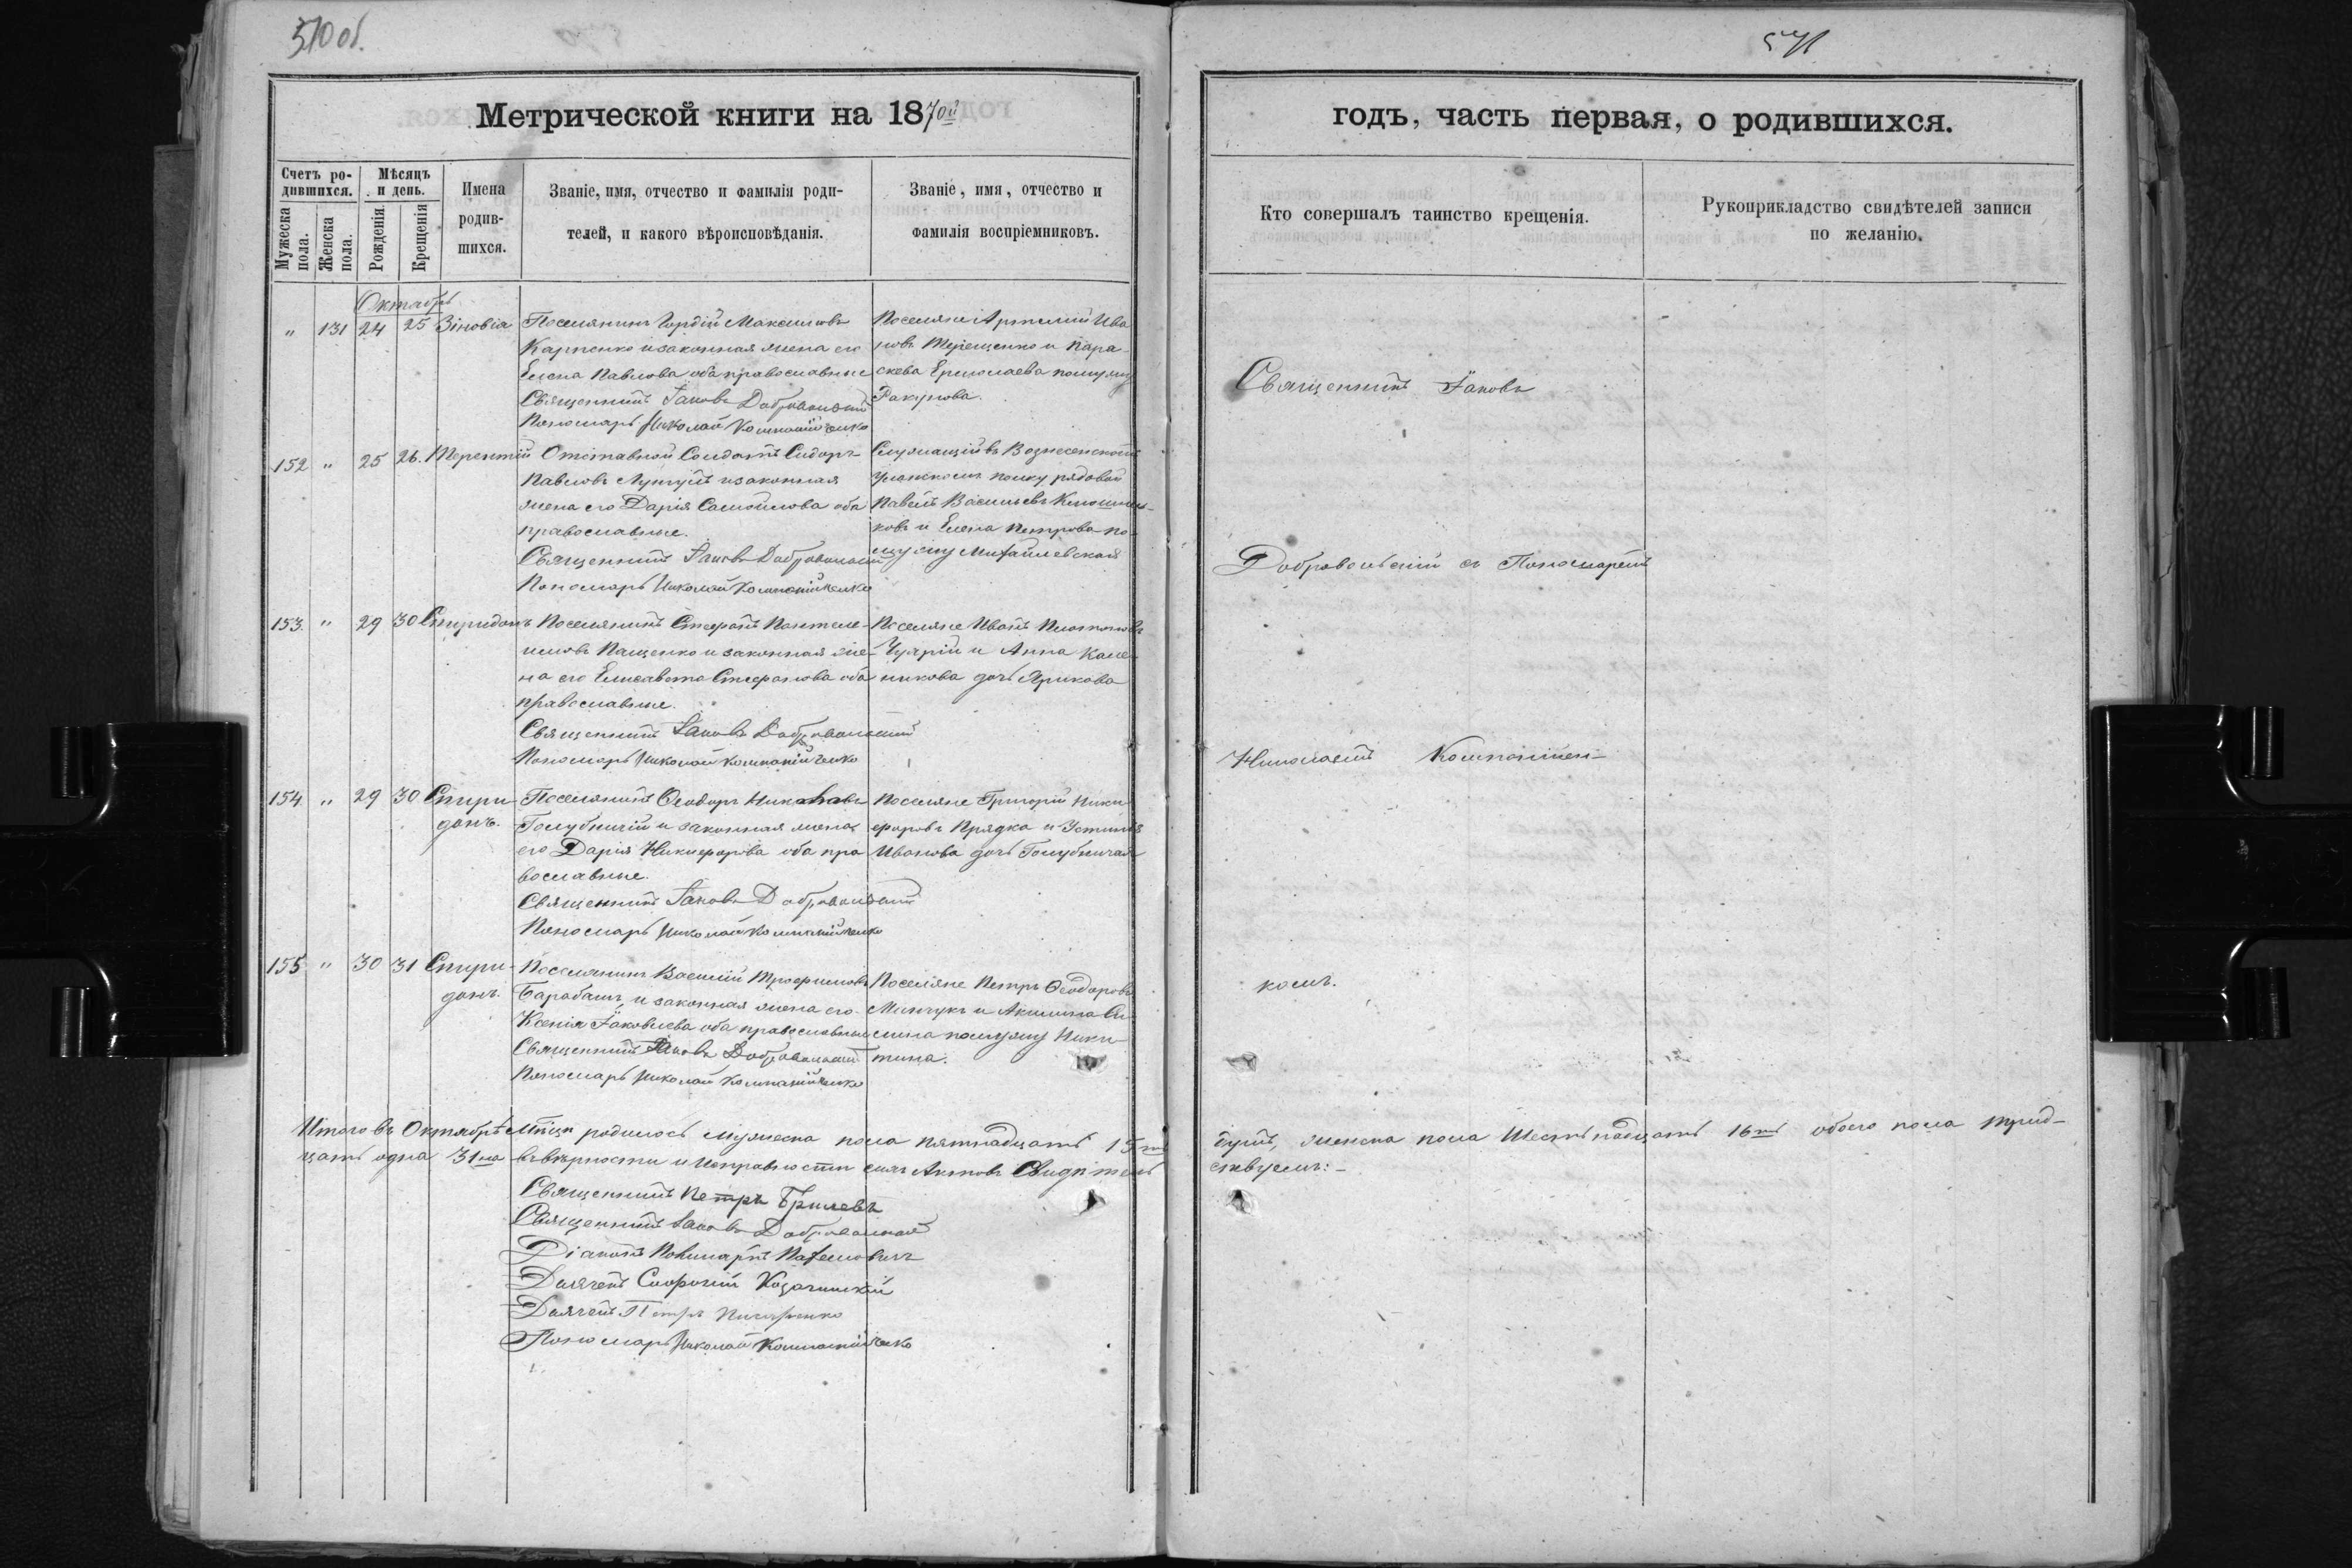 570 об.
Метрической книги на 1870й
Счетъ ро-
дившихся.
Мѣсяцъ
и день.
Мужеска
пола.
Женска
пола.
Рожденія
Крещенія
Имена
родив-
шихся.
Званіе, имя, отчество и фамилія роди-
телей, и какого вѣроисповѣданія.
Званіе, имя, отчество и
фамилія воспріемниковъ.
Октябрь
" 131 24 25 Зіновіа
Поселянинъ Гордій Максимовъ
Карпенко и законная жена его
Елена Павлова оба православные
Священникъ Іаковъ Добровольскій
Пономарь Николай Компанійченко
Поселяне Артемій Ива
новъ Терещенко и Пара-
скева Ермолаева помужу
152 " 25 26. Терентій
Отставной Солдатъ Сидоръ
Павловъ и законная
жена его Дарія Самойлова оба
православные.
Священникъ Іаковъ Добровольскій
Пономарь Николай Компанійченко
Служащій въ Вознесенскомъ
уланскомъ полку рядовой
Павелъ Васильевъ
ковъ и Елена Петрова по-
мужу Михайлевская
153. " 29 30 Спиридонъ
Поселянинъ Стефанъ Пантеле-
имовъ Пащенко и законная же-
на его Елисавета Стефанова оба
православные.
Священникъ Іаковъ Добровольскій
Пономарь Николай Компанійченко
Поселяне Иванъ Платоновъ
и Анна
никова дочь Ярикова
154 " 29 30 Спири-
донъ.
Поселянинъ Ѳеодоръ
Голубничій и законная жена
его Дарія Никифорова оба пра
вославные.
Священникъ Іаковъ Добровольскій
Пономарь Николай Компанійченко
Поселяне Григорій Ники
форовъ Прядка и Устинія
Иванова дочь Голубничая
155 " 30 31 Спири-
донъ.
Поселянинъ Василій Трофимовъ
Барабашъ и законная жена его
Ксенія Іаковлева оба православные
Священникъ Іаковъ Добровольскій
Пономарь Николай Компанійченко
Поселяне Петръ Ѳеодоровъ
и Акилина
помужу Ники-
тина.
Итого въ Октябрѣ Мѣсяцѣ родилось мужеска пола пятнадцать 15ть
цать одна 31на въ вѣрности и исправности сихъ Актовъ Свидѣтель
Священникъ Петръ
Священникъ Іаковъ Добровольскій
Діаконъ
Дьячекъ Софроній Козачинскій
Дьячекъ Петръ
Пономарь Николай Компанійченко
571
годъ, часть первая, о родившихся.
Кто совершалъ таинство крещенія.
Рукоприкладство свидѣтелей записи
по желанію.
Священникъ Іаковъ
Добровольскій съ Пономаремъ
Николаемъ Компанійчен-
комъ.
душъ, женска пола Шестьнадцать 16ть обоего пола трид-
ствуемъ:-